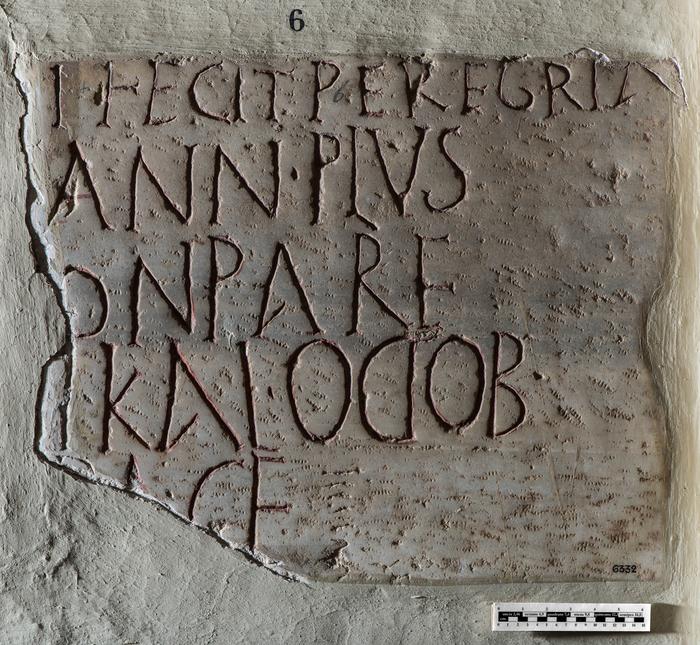 6
I FECIT PEREGRIN
ANN·PLVS
ONPARE
KAL·OCTOB
ACE
6332